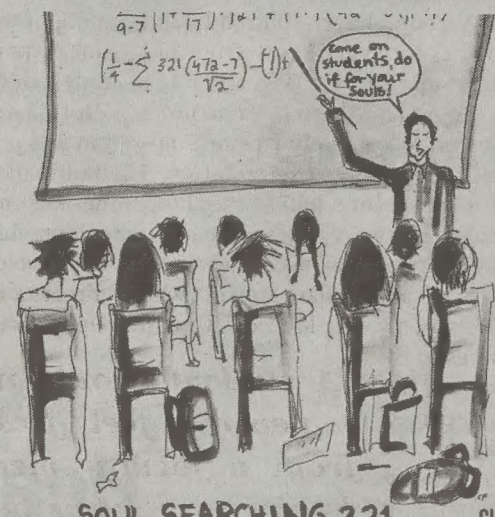 (1/4 - Σ 321 (472-7)/√2) - (1)+
Come on
students, do
it for your
Souls!
SOUL SEARCHING 221